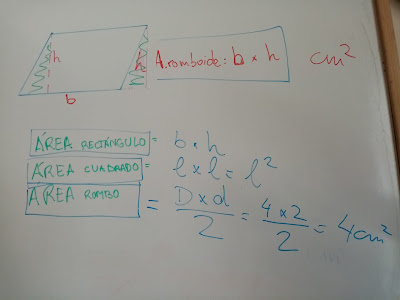 h h A.romboide: b x h cm²
b
ÁREA RECTÁNGULO = b x h
ÁREA CUADRADO = l x l = l²
ÁREA ROMBO = D x d / 2 = 4 x 2 / 2 = 4cm²